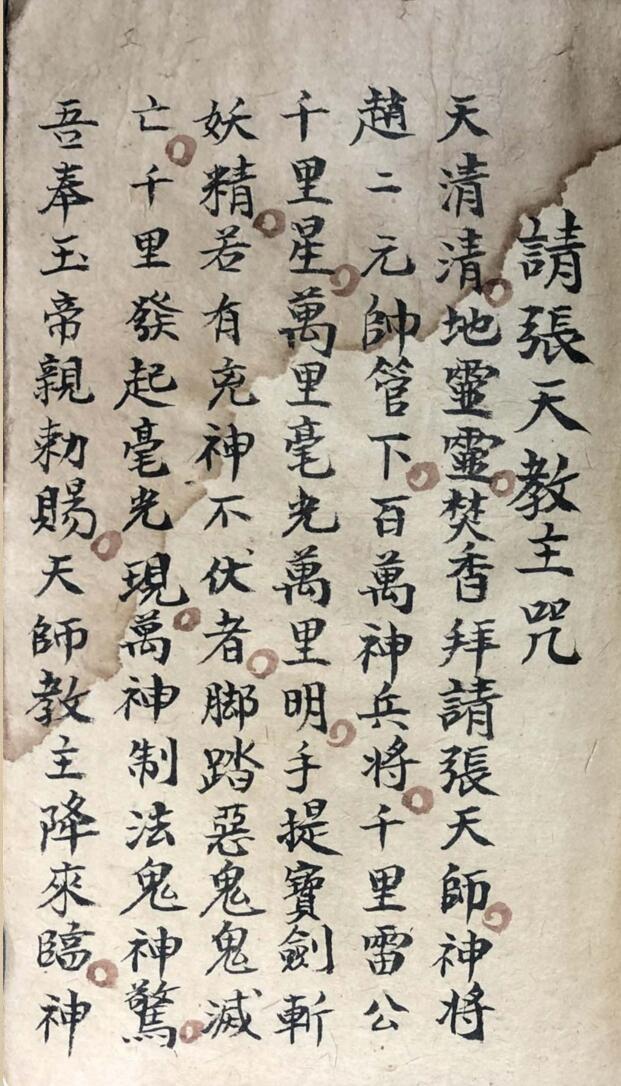 請張天教主咒
天清清地靈靈焚香拜請張天師神将
趙二元帥管下百萬神兵将千里雷公
千里星萬里毫光萬里明手提寶劍斬
妖精若有兇神不伏者脚踏惡鬼鬼滅
亡千里發起毫光現萬神制法鬼神驚
吾奉玉帝親勅賜天師教主降來臨神